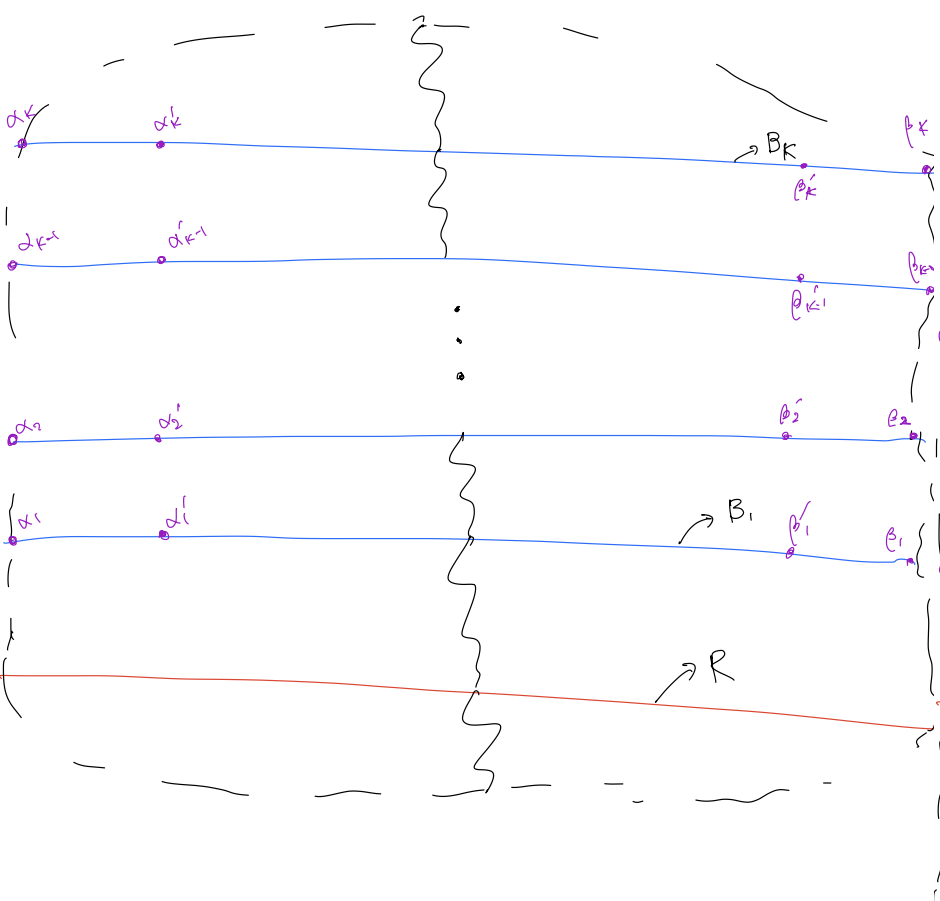 αK α'K BK βK
β'K
αK-1 α'K-1 βK-1
β'K-1
α2 α'2 β'2 β2
α1 α'1 β'1 B1 β1
R